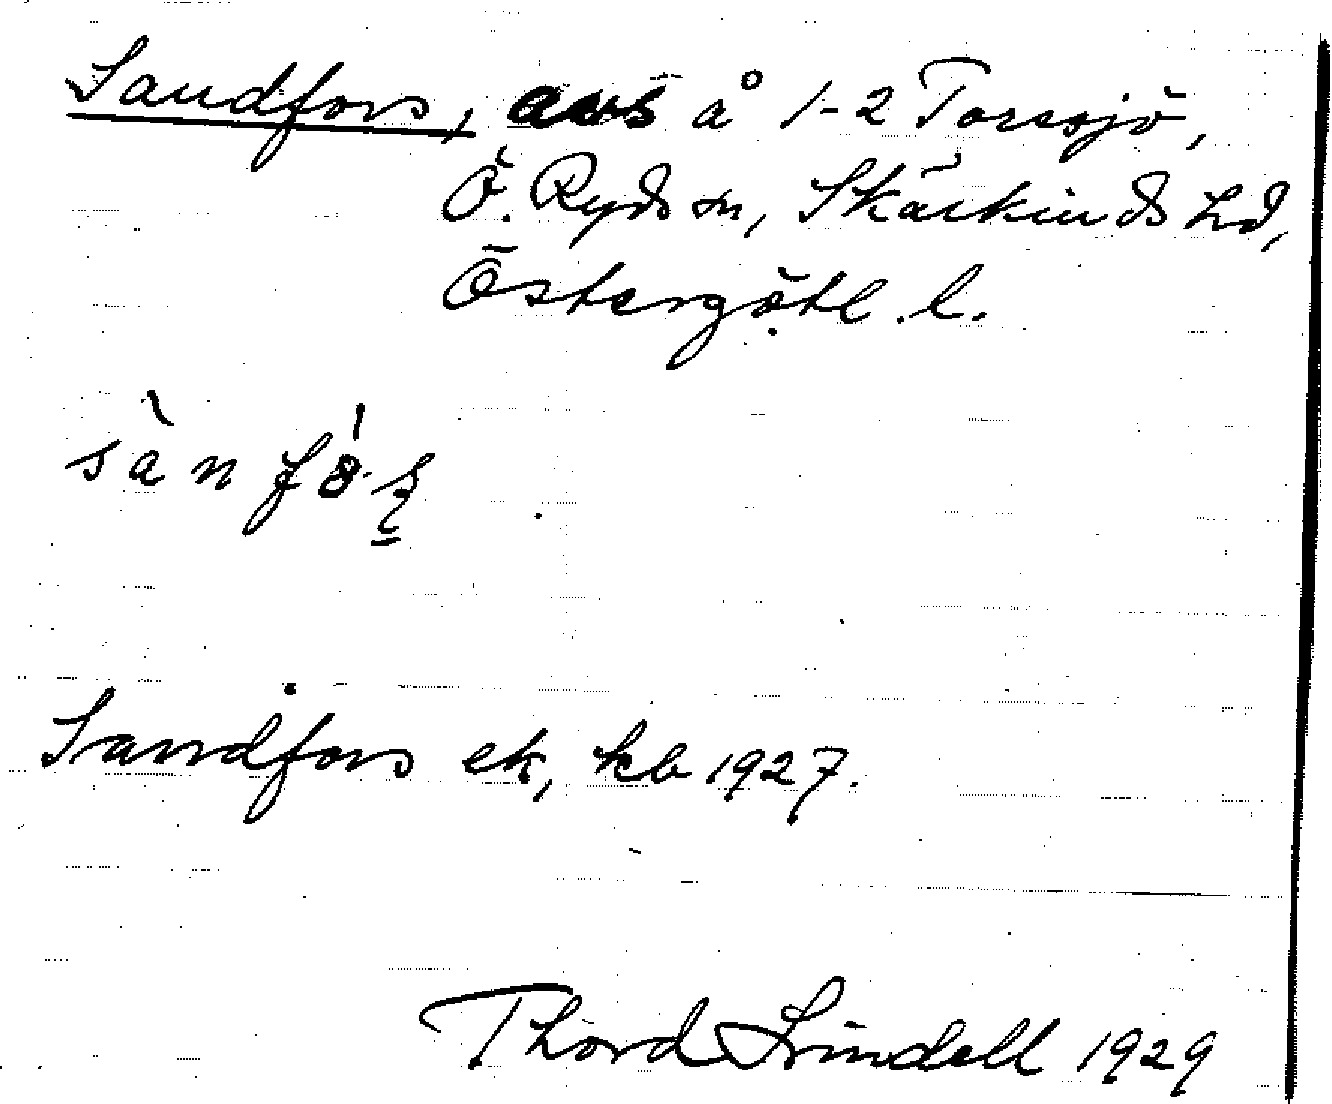 Sandfors, avs å 1-2 Torsojö,
Ö. Ryds sn, Skärkinds hd,
Östergötl. l.
sànfó̤ʂ
Sandfors ek, kb 1927.
Thord Lindell 1929